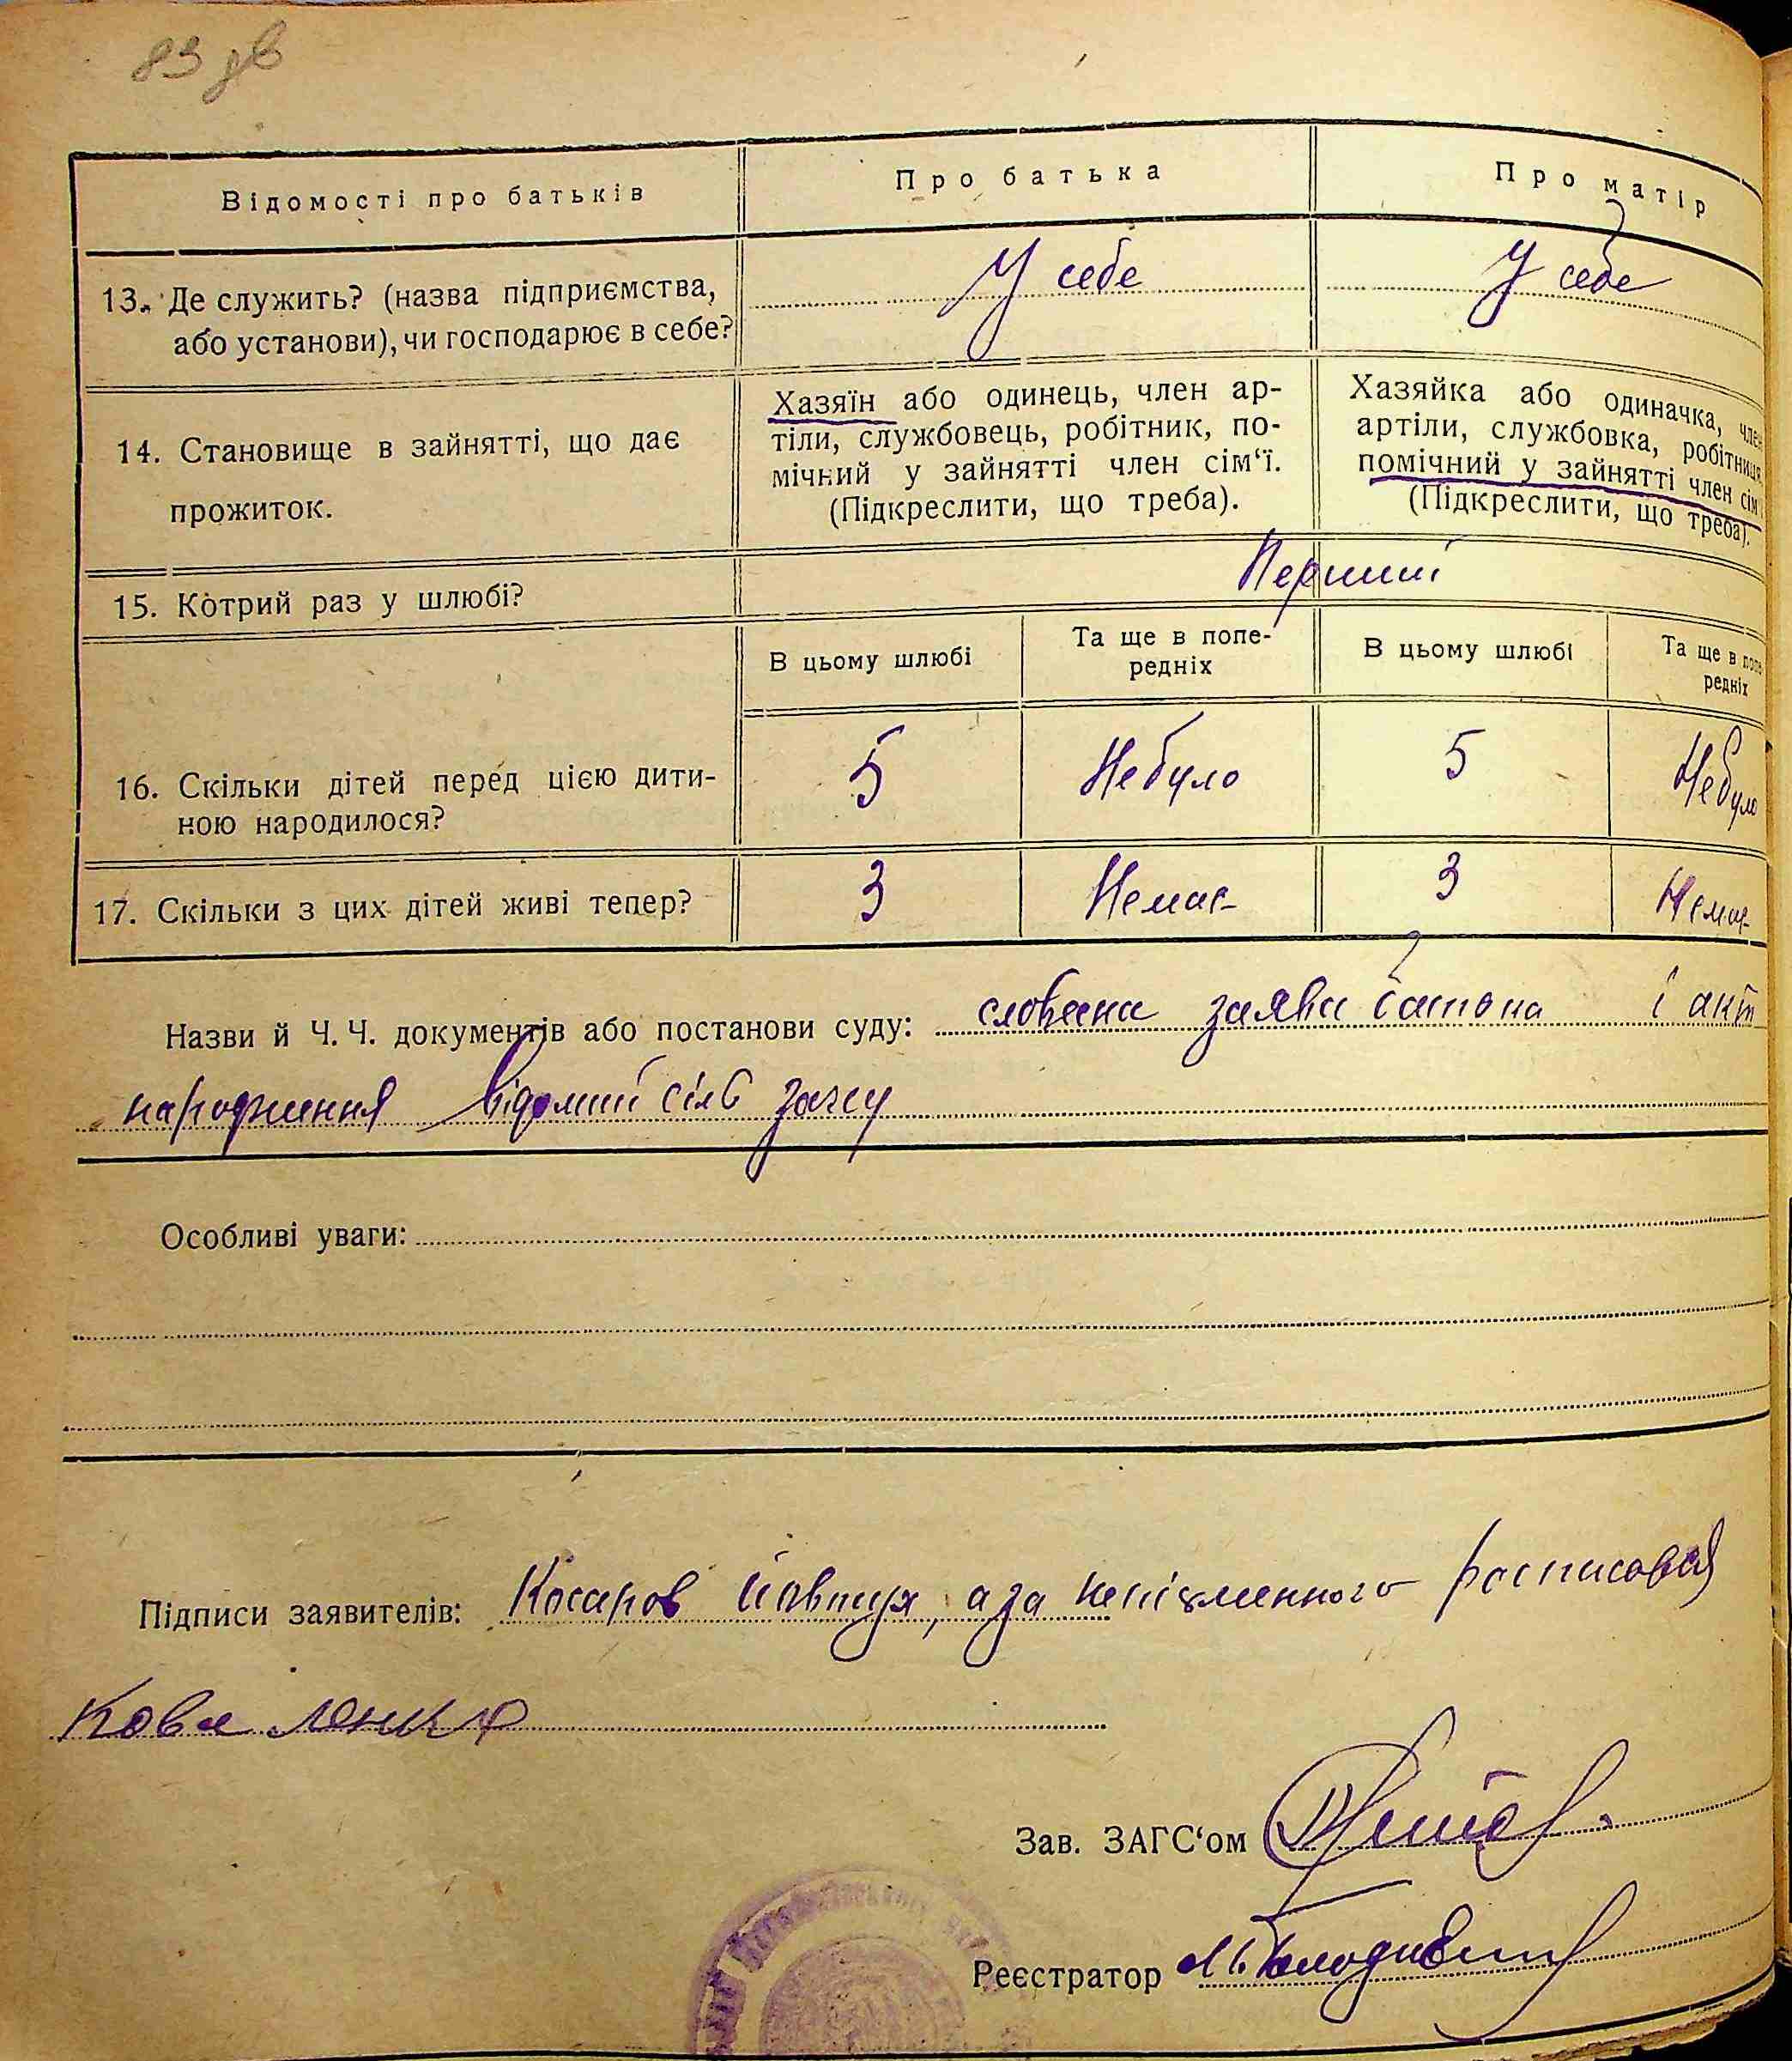 83 зв
Відомості про батьків
Про батька
Про матір
13. Де служить? (назва підприємства,
або установи), чи господарює в себе?
У себе
У себе
14. Становище в зайнятті, що дає
прожиток.
Хазяїн або одинець, член ар-
тіли, службовець, робітник, по-
мічний у зайнятті член сім‘ї.
(Підкреслити, що треба).
Хазяйка або одиначка, член
артіли, службовка, робітниця,
помічний у зайнятті член сім
(Підкреслити, що треба).
15. Котрий раз у шлюбі?
Перший
В цьому шлюбі
Та ще в попе-
редніх
В цьому шлюбі
Та ще в попе-
редніх
16. Скільки дітей перед цією дити-
ною народилося?
5
Небуло
5
Небуло
17. Скільки з цих дітей живі тепер?
3
Немає
3
Немає
Назви й Ч. Ч. документів або постанови суду: словесна заява батька і акт
народження відомий сіль загсу
Особливі уваги:
Підписи заявителів: Косаров а за неписьменного росписовся
Коваленко
Зав. ЗАГС‘ом
Реєстратор